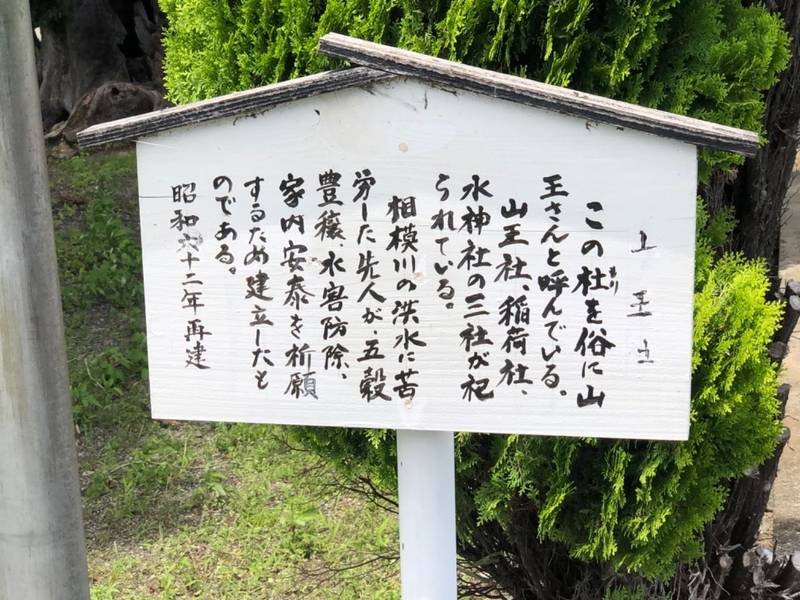 この杜を俗に山
もり
王さんと呼んでいる。
山王社、稲荷社、
水神社の三社が祀
られている。
相模川の洪水に苦
労した先人が、五穀
豊穣、水害防除、
家内安泰を祈願
するため建立したも
のである。
昭和六十二年再建